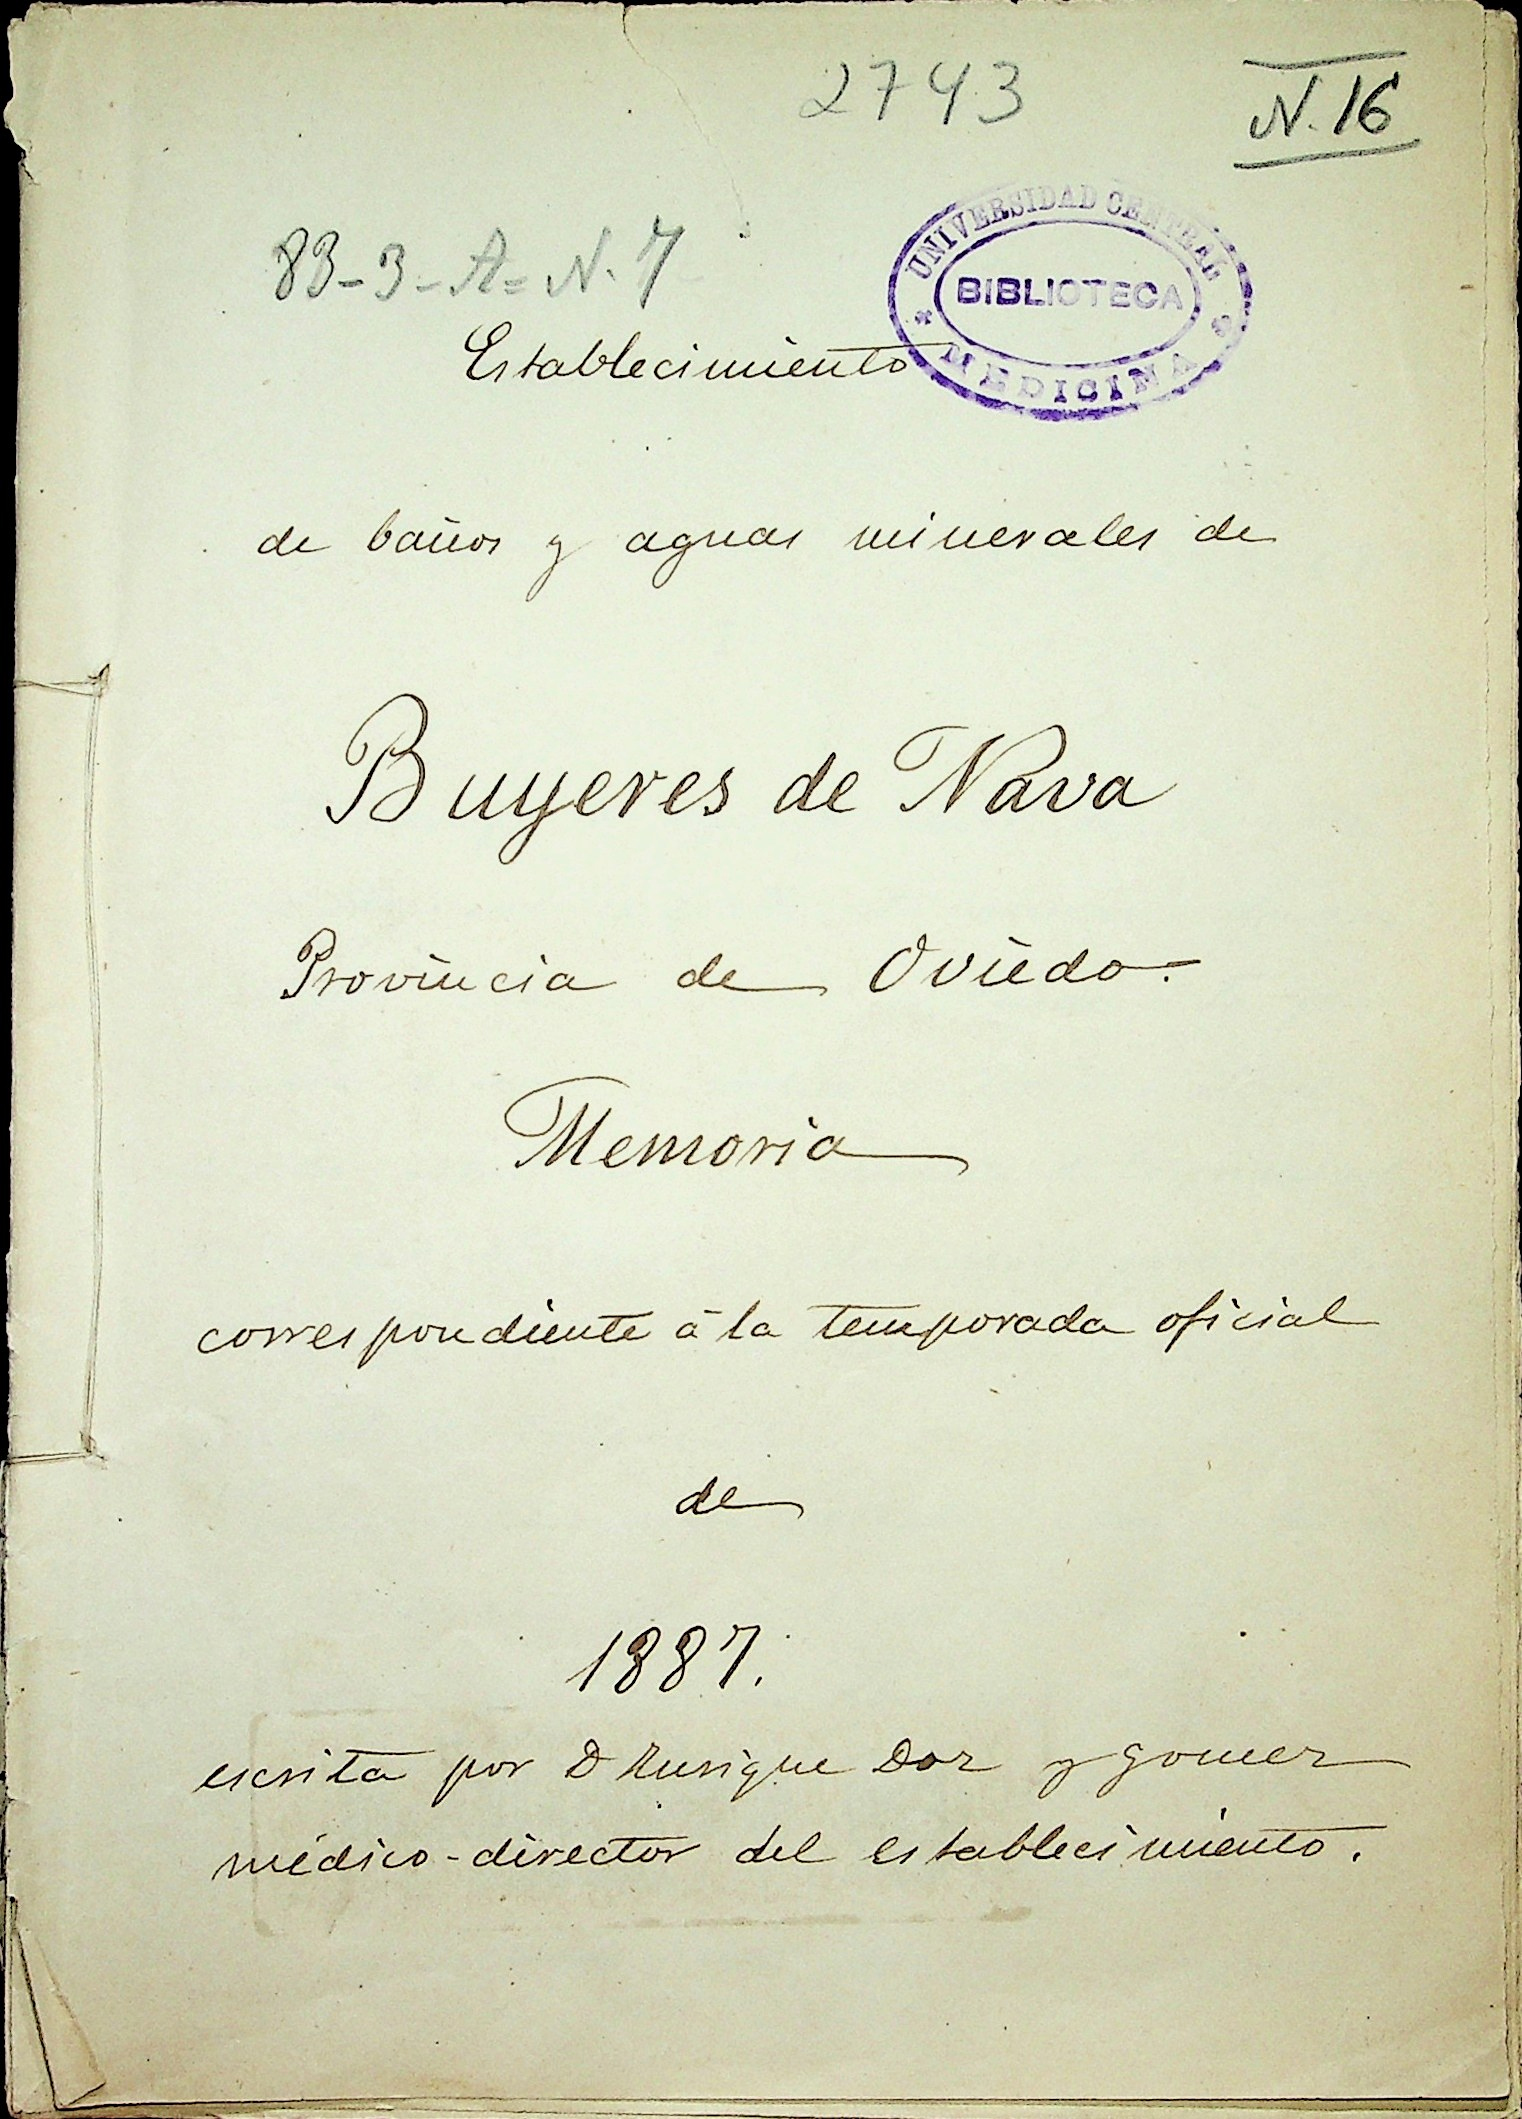 2743
N. 16
83-3-A=N.7
UNIVERSIDAD CENTRAL
BIBLIOTECA
MEDICINA
Establecimiento
de baños y aguas minerales de
Buyeres de Nava
Provincia de Oviedo.
Memoria
correspondiente á la temporada oficial
de
1887.
escrita por D Enrique Doz y Gomez
médico-director del establecimiento.